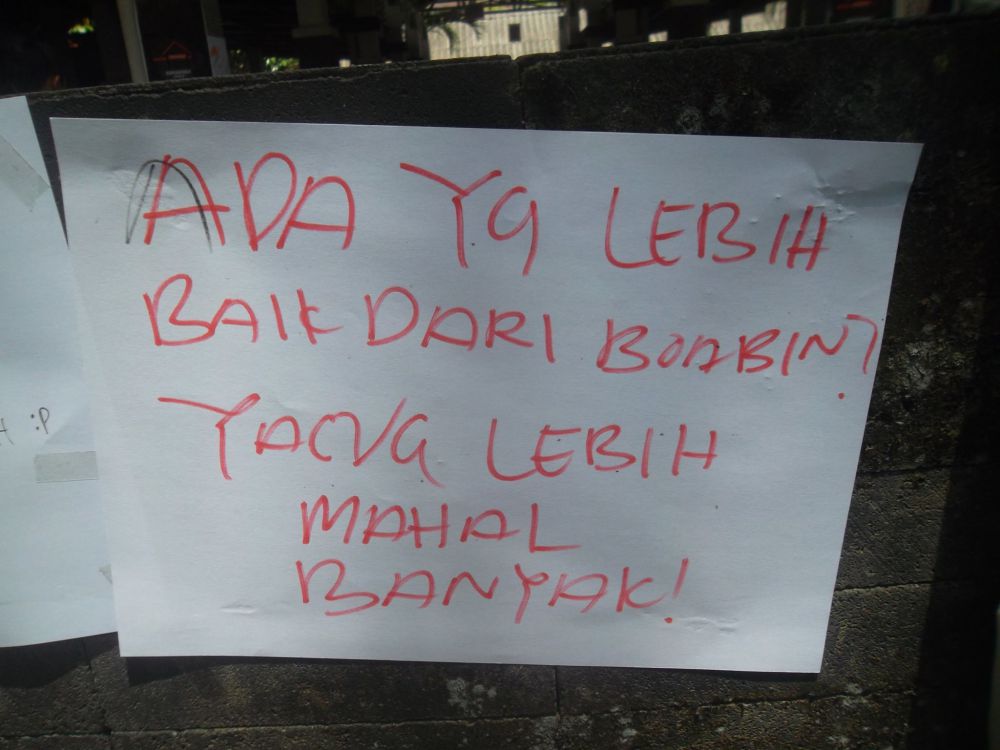 ADA YG LEBIH
BAIK DARI BOABIN?
YANG LEBIH
MAHAL
BANYAK!
:P